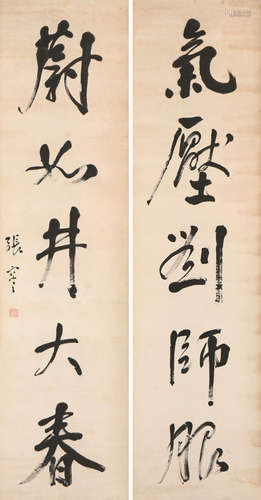 氣壓劉師服
蔚如井大春
張謇